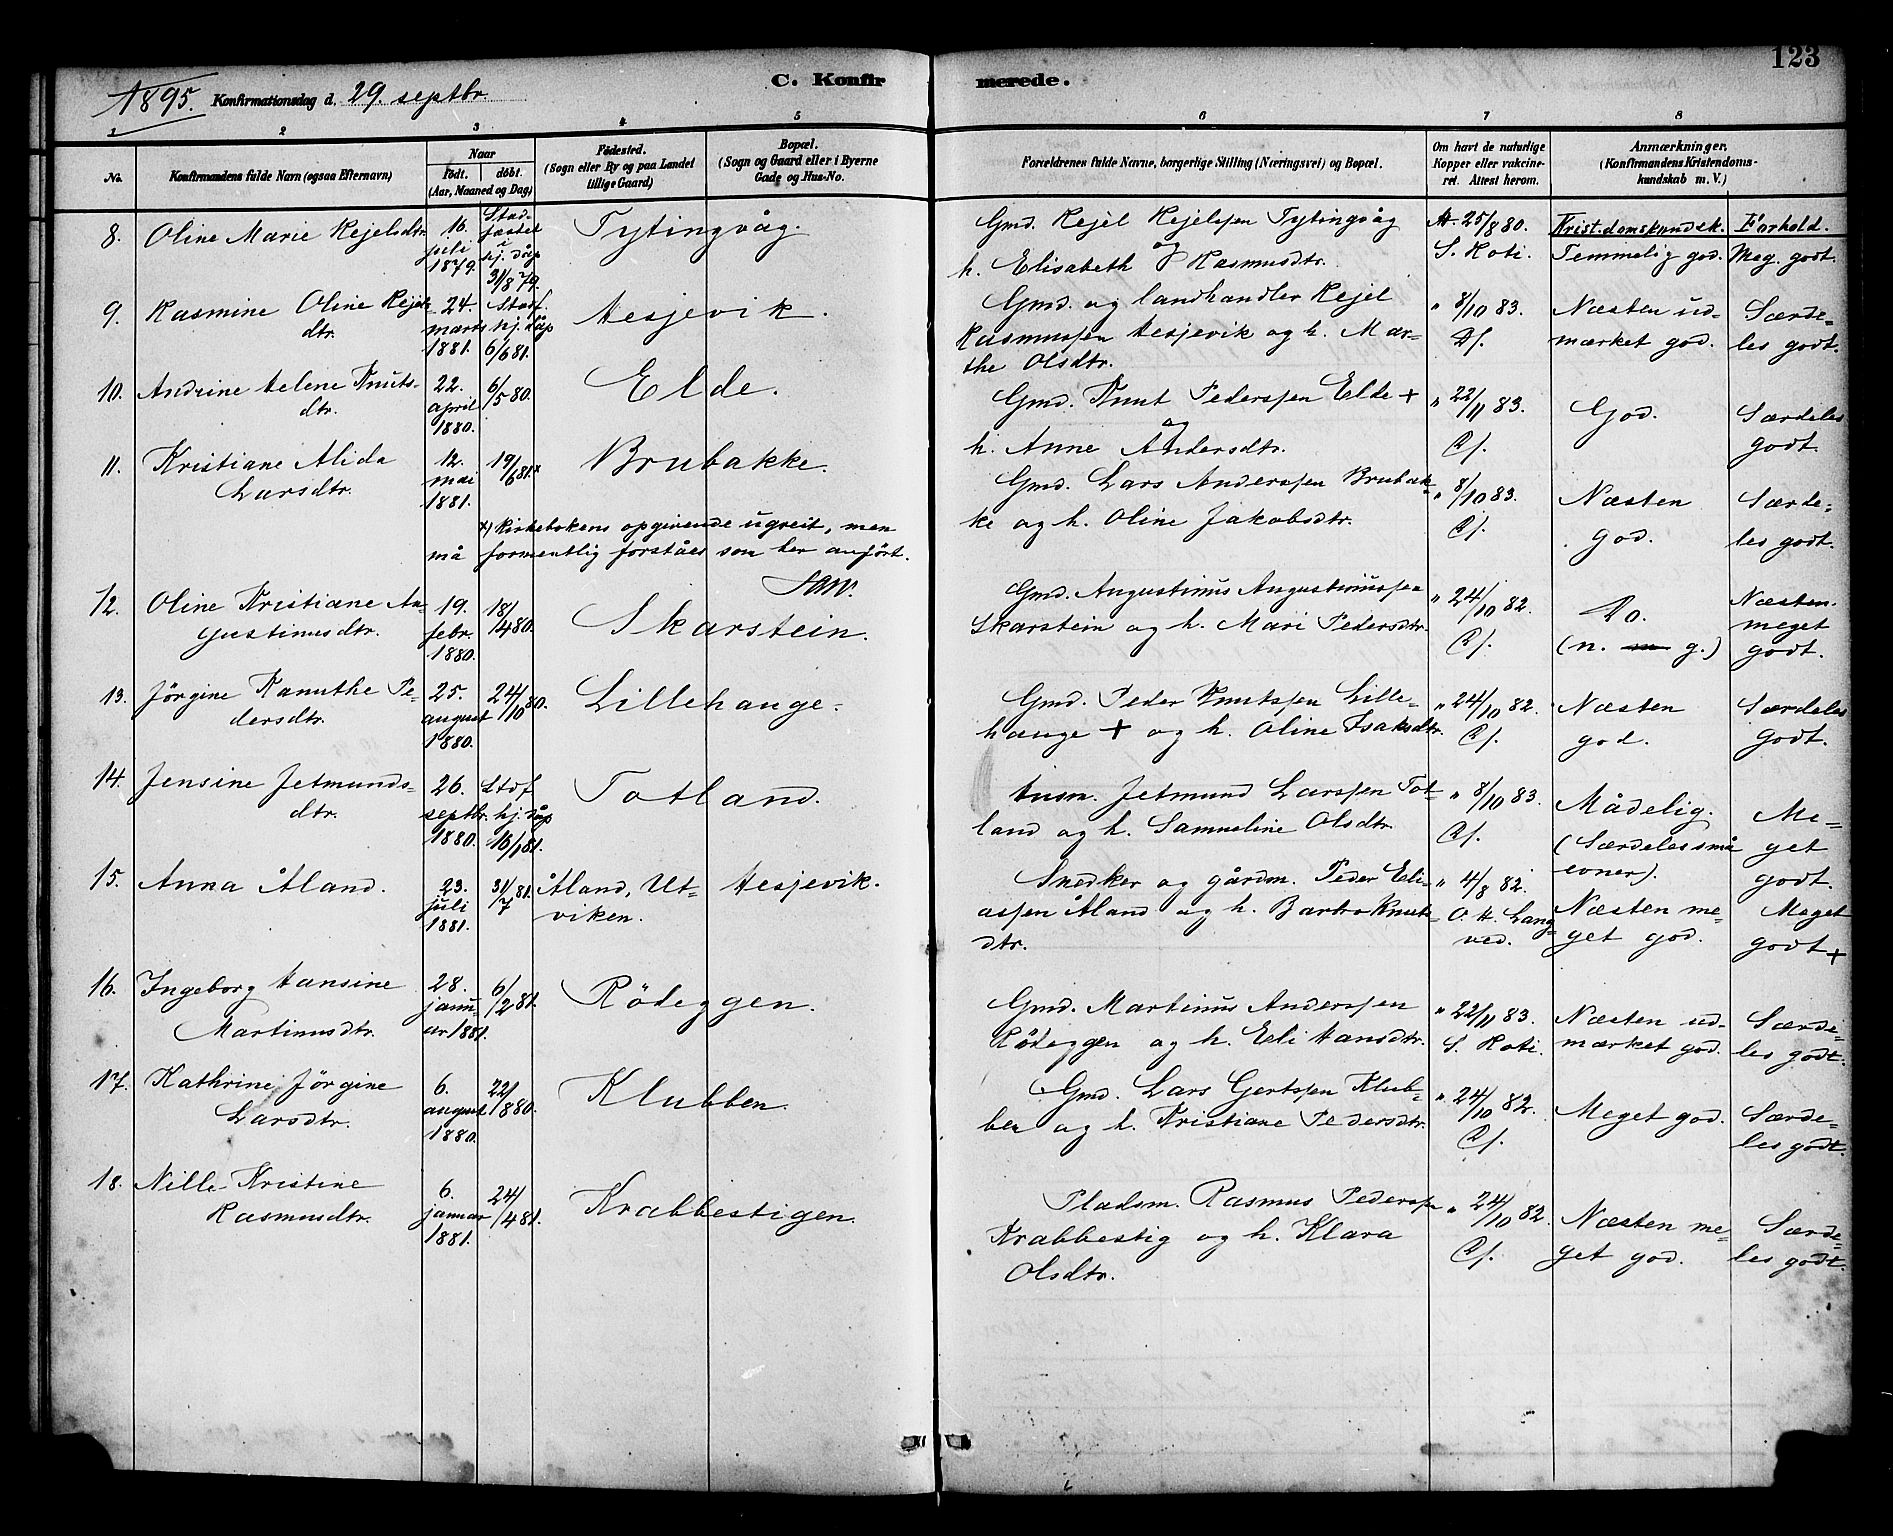 123
1895. Konfirmationsdag d. 29. septbr.
C. Konfirmerede.
1 2 3 4 5 6 7 8
No. Konfirmandens fulde Navn (ogsaa Efternavn)
Naar
Födt. döbt.
(Aar, Maaned og Dag)
Födested.
(Sogn eller By og paa Landet
tillige Gaard)
Bopæl.
(Sogn og Gaard eller i Byerne
Gade og Hus-No.
Forældrenes fulde Navne, borgerlige Stilling (Næringsvei) og Bopæl.
Om havt de naturlige
Kopper eller vakcine-
ret. Attest herom.
Anmærkninger,
(Konfirmandens Kristendoms-
kundskab m. V.)
Krist.domskundsk. Forhold.
8. Oline Marie Kejelsdtr.
16.
juli
1879.
Stad-
fæstet
i
hj. dåp
31/8 79.
Tytingvåg.
Gmd. Kejel Kejelsen Tytingvåg
og
h. Elisabeth Rasmusdtr.
At. 25/8 80.
S. Koti.
Temmelig god.
Meg. godt.
9. Rasmine Oline Kejels
dtr.
24.
marts
1881.
Stadf.
hj. dåp
6/6 81.
Hesjevik.
Gmd. og landhandler Kejel
Rasmussen Hesjevik og h. Mar-
the Olsdtr.
" 8/10 83.
Næsten ud-
mærket god.
Særde-
les godt.
10. Andrine Helene Knuts-
dtr.
22.
april
1880.
6/5 80.
Elde.
Gmd. Knut Pedersen Elde +
og
h. Anne Andersdtr.
" 22/11 83.
God.
Særdeles
godt.
11. Kristiane Alida
Larsdtr.
12.
mai
1881.
19/6 81.x
Brubakke.
x) Kirkebokens opgivende ugreit, men
må formentlig forståes som her anført.
Gmd. Lars Andersen Brubak-
ke og h. Oline Jakobsdtr.
" 8/10 83.
Næsten
god.
Særde-
les godt.
12. Oline Kristiane Au-
gustinusdtr.
19.
febr.
1880.
18/4 80.
Skarstein.
Gmd. Augustinus Augustinussen
Skarstein og h. Mari Pedersdtr.
" 24/10 82.
Do.
(n. g.)
Næsten
meget
godt.
13. Jørgine Kanuthe Pe-
dersdtr.
25.
august
1880.
24/10 80.
Lillehauge.
Gmd. Peder Knutsen Lille-
hauge + og h. Oline Isaksdtr.
" 24/10 82.
Næsten
god.
Særdeles
godt.
14. Jensine Jetmunds-
dtr.
26.
septbr.
1880.
Stdf
hj. dåp
16/1 81.
Totland.
Husm. Jetmund Larsen Tot-
land og h. Samueline Olsdtr.
" 8/10 83.
Mådelig.
(Særdeles små
evner).
Me-
get
godt.
15. Anna Åland.
23.
juli
1881.
31/7 81.
Åland, Ut-
viken.
Hesjevik.
Snedker og gårdm. Peder Eli-
assen Åland og h. Barbro Knuts-
dtr.
" 4/8 82.
O. H. Lang-
ved.
Næsten me-
get god.
Meget
godt +
16. Ingeborg Hansine
Martinusdtr.
28.
janu-
ar 1881.
6/2 81.
Rödeggen.
Gmd. Martinus Andersen
Rödeggen og h. Eli Hansdtr.
" 22/11 83.
S. Koti.
Næsten ud-
mærket god.
Særde-
les godt.
17. Kathrine Jørgine
Larsdtr.
6.
august
1880.
22/8 80.
Klubben.
Gmd. Lars Gertsen Klub-
ben og h. Kristiane Pedersdtr.
" 24/10 82.
Meget god.
Særde-
les godt.
18. Nille Kristine
Rasmusdtr.
6.
januar
1881.
24/4 81.
Krabbestigen.
Pladsm. Rasmus Pedersen
Krabbestig og h. Klara
Olsdtr.
" 24/10 82.
Næsten me-
get god.
Særde-
les godt.